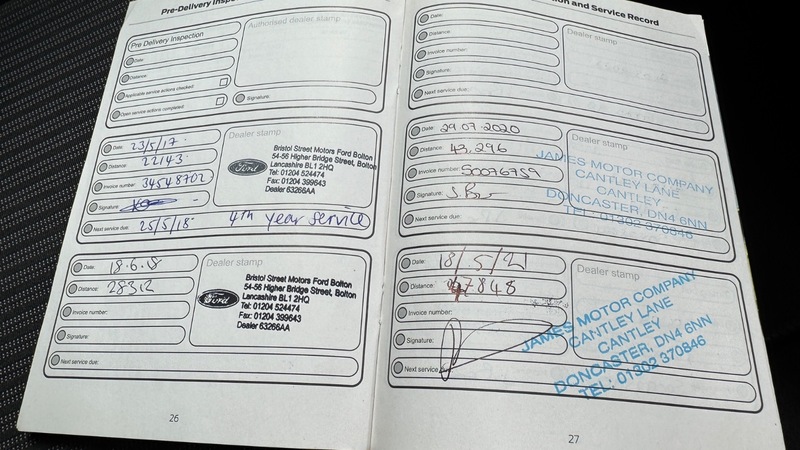 Pre-Delivery Inspe
Pre Delivery Inspection
Date:
Distance:
Applicable service actions checked:
Open service actions completed:
Authorised dealer stamp
Signature:
Date: 23/5/17
Distance: 22143
Invoice number: 34548702
Signature:
Next service due: 25/5/18 4th year service
Dealer stamp
Ford
Bristol Street Motors Ford Bolton
54-56 Higher Bridge Street, Bolton
Lancashire BL1 2HQ
Tel: 01204 524474
Fax: 01204 399643
Dealer 63266AA
Date: 18.6.18
Distance: 28312
Invoice number:
Signature:
Next service due:
Dealer stamp
Ford
Bristol Street Motors Ford Bolton
54-56 Higher Bridge Street, Bolton
Lancashire BL1 2HQ
Tel: 01204 524474
Fax: 01204 399643
Dealer 63266AA
26
ion and Service Record
Date:
Distance:
Invoice number:
Signature:
Next service due:
Dealer stamp
Date: 29.07.2020
Distance: 43,296
Invoice number: 50076759
Signature:
Next service due:
Dealer stamp
JAMES MOTOR COMPANY
CANTLEY LANE
CANTLEY
DONCASTER, DN4 6NN
TEL: 01302 370846
Date: 18/5/21
Distance: 47848
Invoice number:
Signature:
Next service due:
Dealer stamp
JAMES MOTOR COMPANY
CANTLEY LANE
CANTLEY
DONCASTER, DN4 6NN
TEL: 01302 370846
27